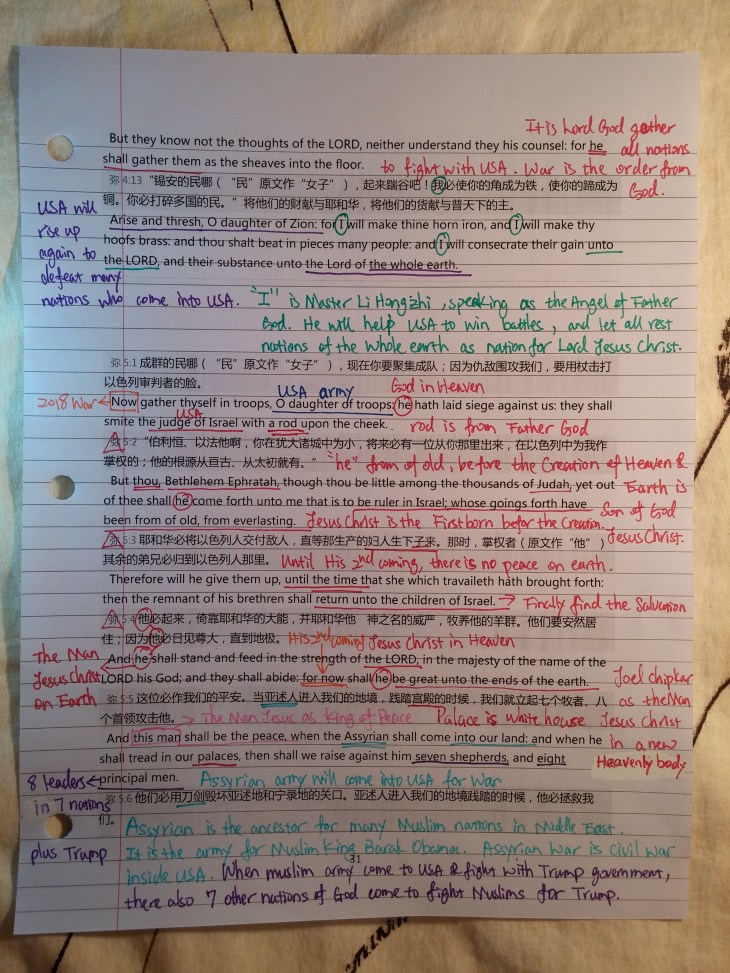 It is Lord God gather
But they know not the thoughts of the LORD, neither understand they his counsel: for he all nations
shall gather them as the sheaves into the floor. to fight with USA. War is the order from
God.
弥 4:13 “锡安的民哪（“民”原文作“女子”），起来踹谷吧！我必使你的角成为铁，使你的蹄成为
铜。你必打碎多国的民。”将他们的财献与耶和华，将他们的货献与普天下的主。
USA will
rise up
again to
defeat many
nations who come into USA.
Arise and thresh, O daughter of Zion: for I will make thine horn iron, and I will make thy
hoofs brass: and thou shalt beat in pieces many people: and I will consecrate their gain unto
the LORD, and their substance unto the Lord of the whole earth.
"I" is Master Li Hongzhi, speaking as the Angel of Father
God. He will help USA to win battles, and let all rest
nations of the whole earth as nation for Lord Jesus Christ.
弥 5:1 成群的民哪（“民”原文作“女子”），现在你要聚集成队；因为仇敌围攻我们，要用杖击打
以色列审判者的脸。
USA army God in Heaven
2018 War
Now gather thyself in troops, O daughter of troops: he hath laid siege against us: they shall
USA
smite the judge of Israel with a rod upon the cheek. rod is from Father God
弥 5:2 “伯利恒、以法他啊，你在犹大诸城中为小，将来必有一位从你那里出来，在以色列中为我作
掌权的；他的根源从亘古、从太初就有。” "he" from of old, before the Creation of Heaven &
But thou, Bethlehem Ephratah, though thou be little among the thousands of Judah, yet out Earth is
of thee shall he come forth unto me that is to be ruler in Israel; whose goings forth have Son of God
been from of old, from everlasting. Jesus Christ is the Firstborn befor the Creation. Jesus Christ.
弥 5:3 耶和华必将以色列人交付敌人，直等那生产的妇人生下子来。那时，掌权者（原文作“他”）
其余的弟兄必归到以色列人那里。 Until His 2nd coming, there is no peace on earth.
Therefore will he give them up, until the time that she which travaileth hath brought forth:
then the remnant of his brethren shall return unto the children of Israel. → Finally find the Salvation
弥 5:4 他必起来，倚靠耶和华的大能，并耶和华他 神之名的威严，牧养他的羊群。他们要安然居
住；因为他必日见尊大，直到地极。 His 2nd coming Jesus Christ in Heaven
The Man
Jesus Christ
on Earth
And he shall stand and feed in the strength of the LORD, in the majesty of the name of the
LORD his God; and they shall abide: for now shall he be great unto the ends of the earth.
Joel chipkar
as the Man
Jesus Christ
in a new
Heavenly body
弥 5:5 这位必作我们的平安。当亚述人进入我们的地境，践踏宫殿的时候，我们就立起七个牧者、八
个首领攻击他。 → The Man Jesus as King of Peace Palace is White house
And this man shall be the peace, when the Assyrian shall come into our land: and when he
shall tread in our palaces, then shall we raise against him seven shepherds, and eight
principal men. Assyrian army will come into USA for War
8 leaders
in 7 nations
plus Trump
弥 5:6 他们必用刀剑毁坏亚述地和宁录地的关口。亚述人进入我们的地境践踏的时候，他必拯救我
们。
Assyrian is the ancestor for many Muslim nations in Middle East.
It is the army for Muslim King Barak Obama. Assyrian War is civil war
31
inside USA. When muslim army come to USA & fight with Trump government,
there also 7 other nations of God come to fight Muslims for Trump.